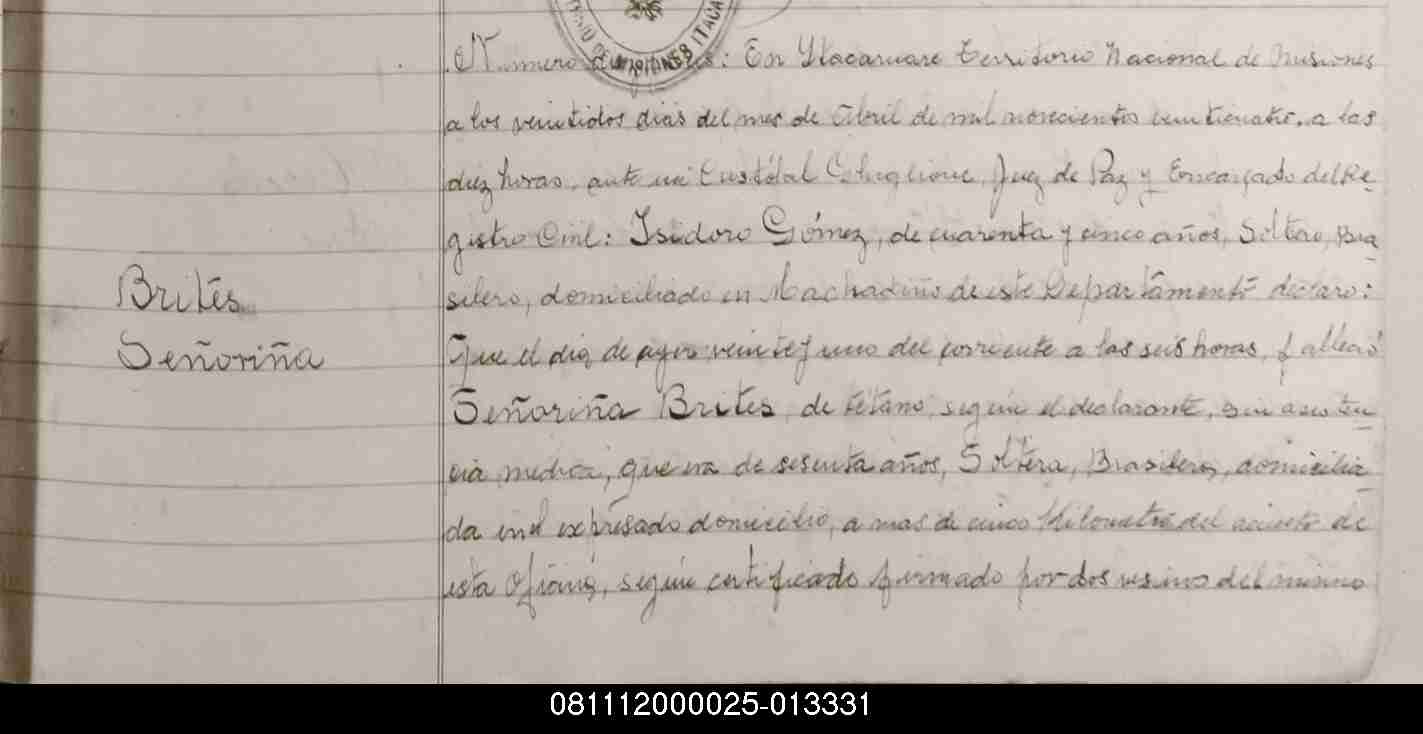 Numero : En Ytacaruare Territorio Nacional de Misiones
a los veintidos dias del mes de Abril de mil novecientos veinticuatro, a las
diez horas, ante mi Juez de Paz y Encargado del Re
gistro Civil: Isidoro Gómez, de cuarenta y cinco años, Soltero, Bra
silero, domiciliado en Machadiño de este Departamento declaro:
Brites
Que el dia de ayer veinte y uno del corriente a las seis horas, fallecio
Señoriña
Señoriña Brites, de tétano, según el declarante, sin asisten
cia medica, que era de sesenta años, Soltera, Brasilera, domicilia
da en el expresado domicilio, a mas de cinco Kilometros del asiento de
esta Oficina, según certificado firmado por dos vesinos del mismo
081112000025-013331